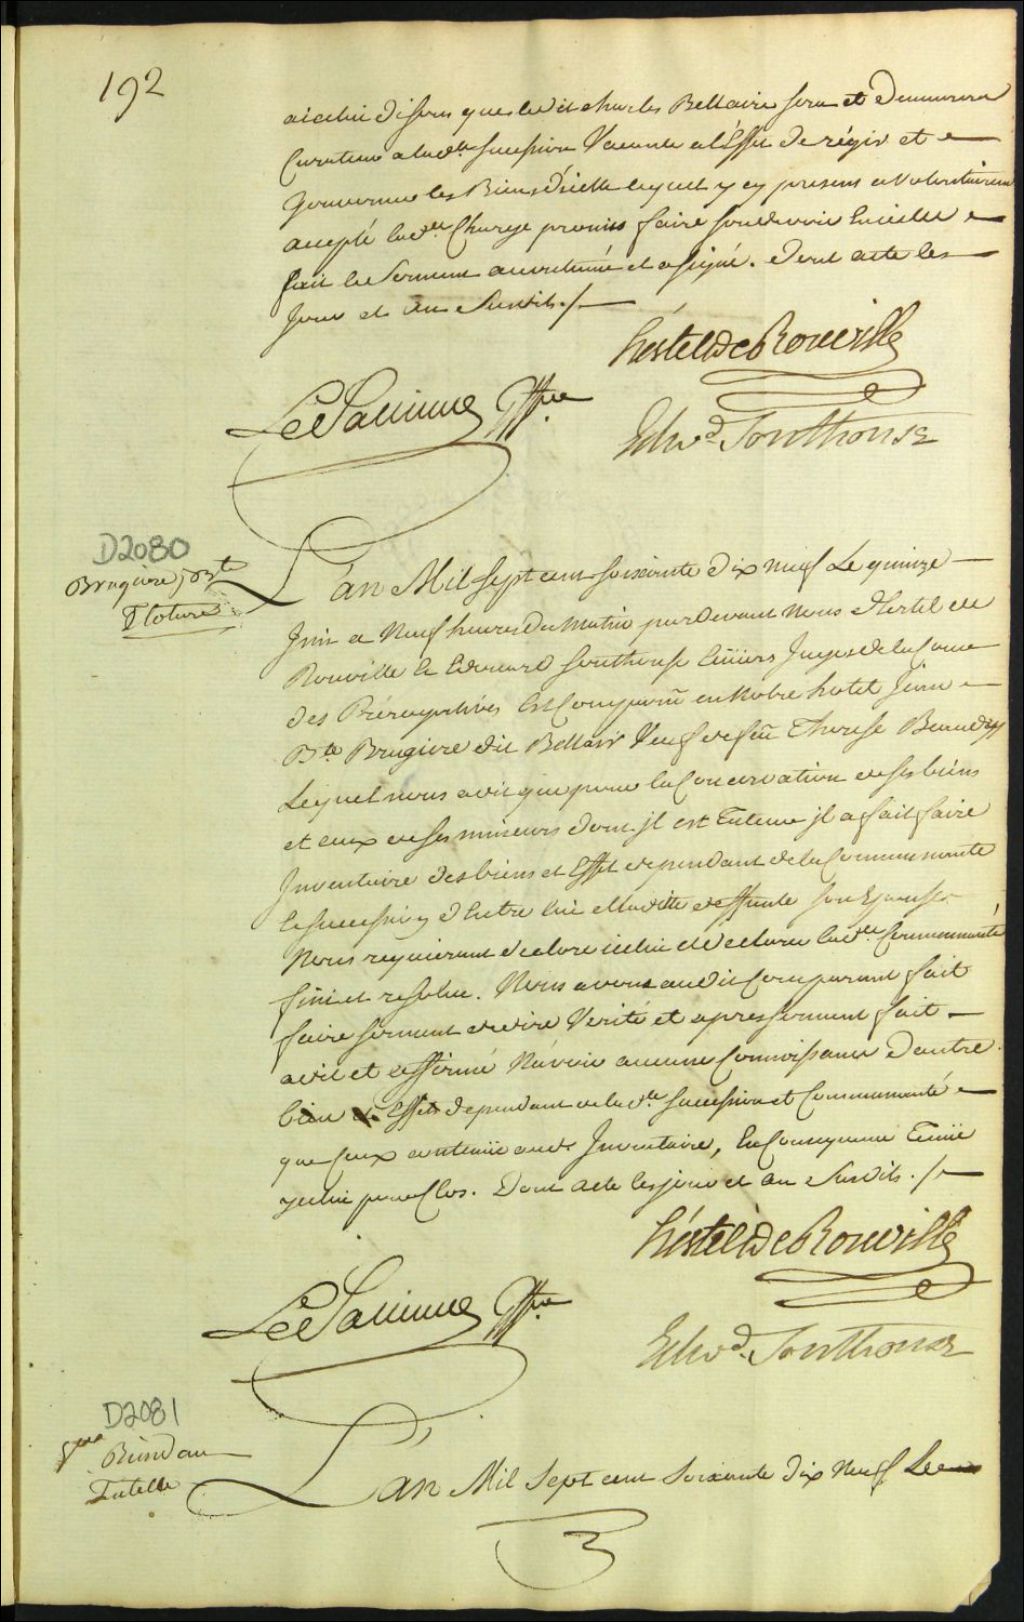 192
disons que ledit Charles Bellaire sera et Demeurera
Curateur a lad.te Succession Vacante a l'Effet de régir et
Gouverner les Biens d'icelle lequel y present a Volontairement
accepté lad.te Charge promis faire son devoir
fait le Serment accoutumé et a signé. Dont acte les
Jour et An Susdits ./.
hertel de Rouville
LeeSaulnier Gffier
Edwd Southouse
D2080
Brugiere, Bte
Cloture
L'an Mil Sept cent Soixante Dix neuf Le quinze
Juin a Neuf heures du Matin par Devant Nous Hertel de
Rouville & Edouard Southouse Ecuiers Juges de la Cour
des Est Comparu en Notre hotel Jean
Bte Brugiere dit Bellair Veuf de feu Therese
Lequel nous a dit que pour la Conservation de ses biens
et ceux de ses mineurs dont jl est Tuteur jl a fait faire
Inventaire des biens et Effet dependant de la Communauté
et Succession d'Entre lui et ladite deffunte son Epouse
Nous requierant de clore icelui et declarer lad.te Communauté
finie et resolue. Nous avons audit Comparant fait
faire Serment de dire Verité et apres Serment fait
a dit et affirmé N'avoir aucune Connoissance d'autre
bien Effets dependant de lad.te Succession et Communauté
que Ceux contenü audt Inventaire, En Consequence
pour Clos. Dont Acte les jour et An Susdits ./.
hertel de Rouville
LeeSaulnier Gffier
Edwd Southouse
D2081
Tutelle
L'an Mil Sept cent Soixante Dix Neuf Le